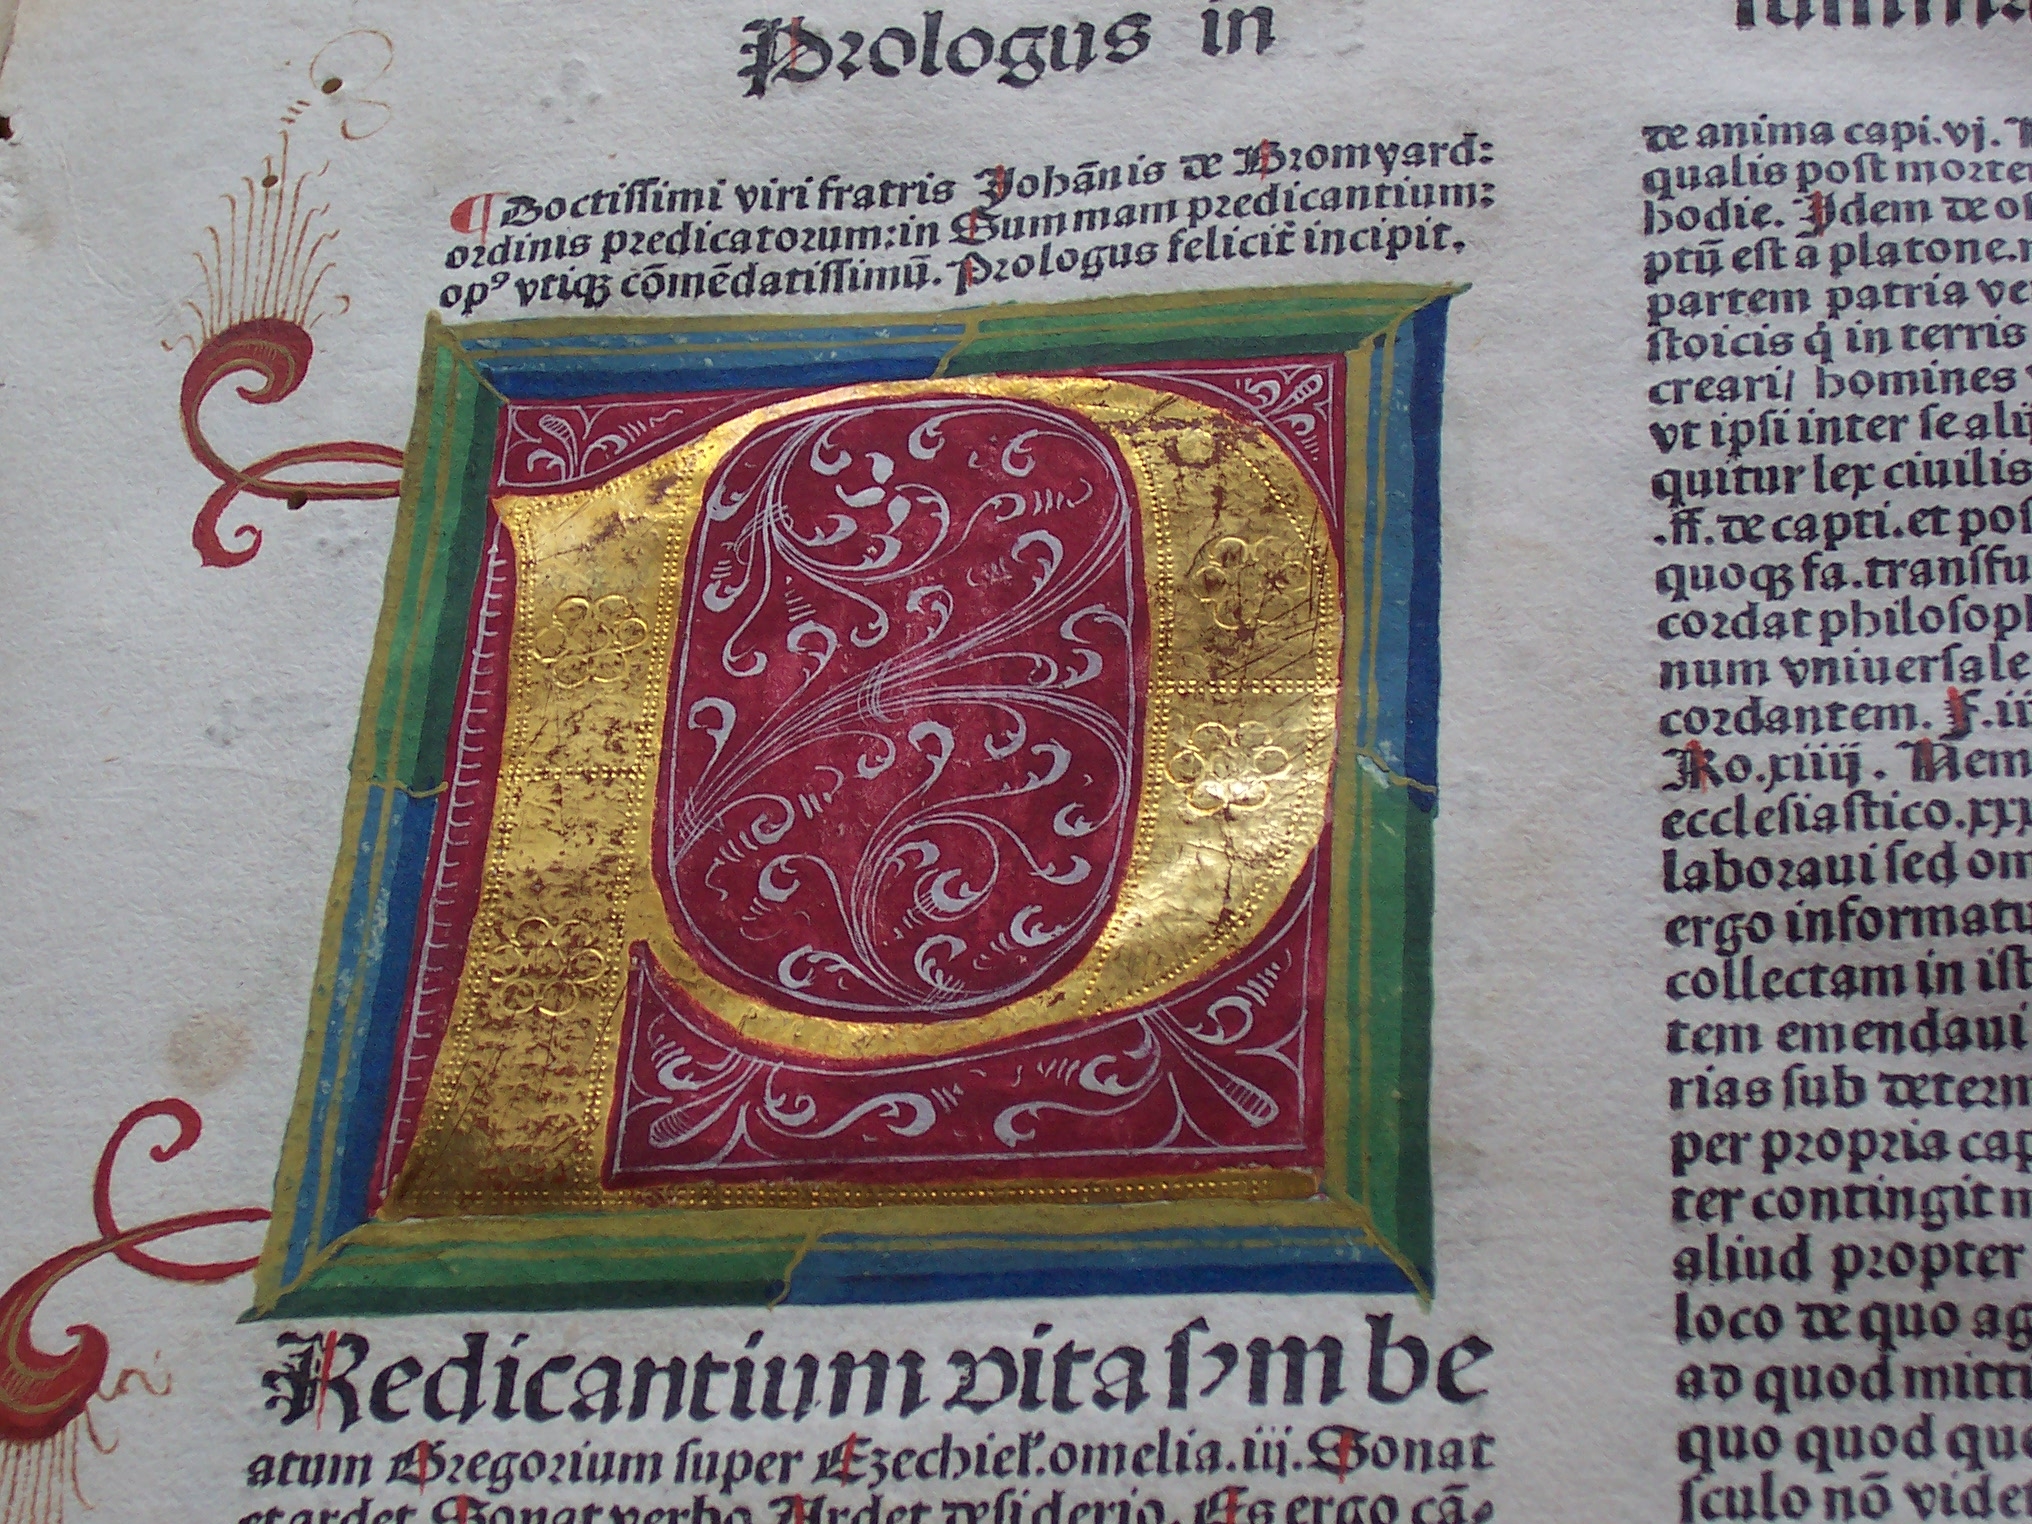 Prologus in
¶ Doctissimi viri fratris Johānis de Bromyard:
ordinis predicatorum: in Summam predicantium:
opꝰ vtiqꝫ cōmēdatissimū. Prologus felicit̄ incipit.
P
Redicantium vita ſꝫm be
atum Gregorium ſuper Ezechiel. omelia. iij. Sonat
et ardet Sonat verbo Ardet deſiderio. Es ergo cā⸗
de anima capi. vj.
qualis poſt morte
hodie. Idem de
ptū eſt a platone.
partem patria ve
ſtoicis q̇ in terris
creari/ homines
vt ipſi inter ſe alij
quitur lex ciuilis
.ff. de capti. et poſ
quoqꝫ fa. tranſfu
cordat philoſoph
num vniuerſale
cordantem. F. iij
Ro. xiiij. Nem
eccleſiaſtico. xxx
laboraui ſed om
ergo informatu
collectam in iſt
tem emendaui
rias ſub determ
per propria cap
ter contingit
aliud propter
loco de quo ag
ad quod mitti
quo quod que
ſculo nō videt